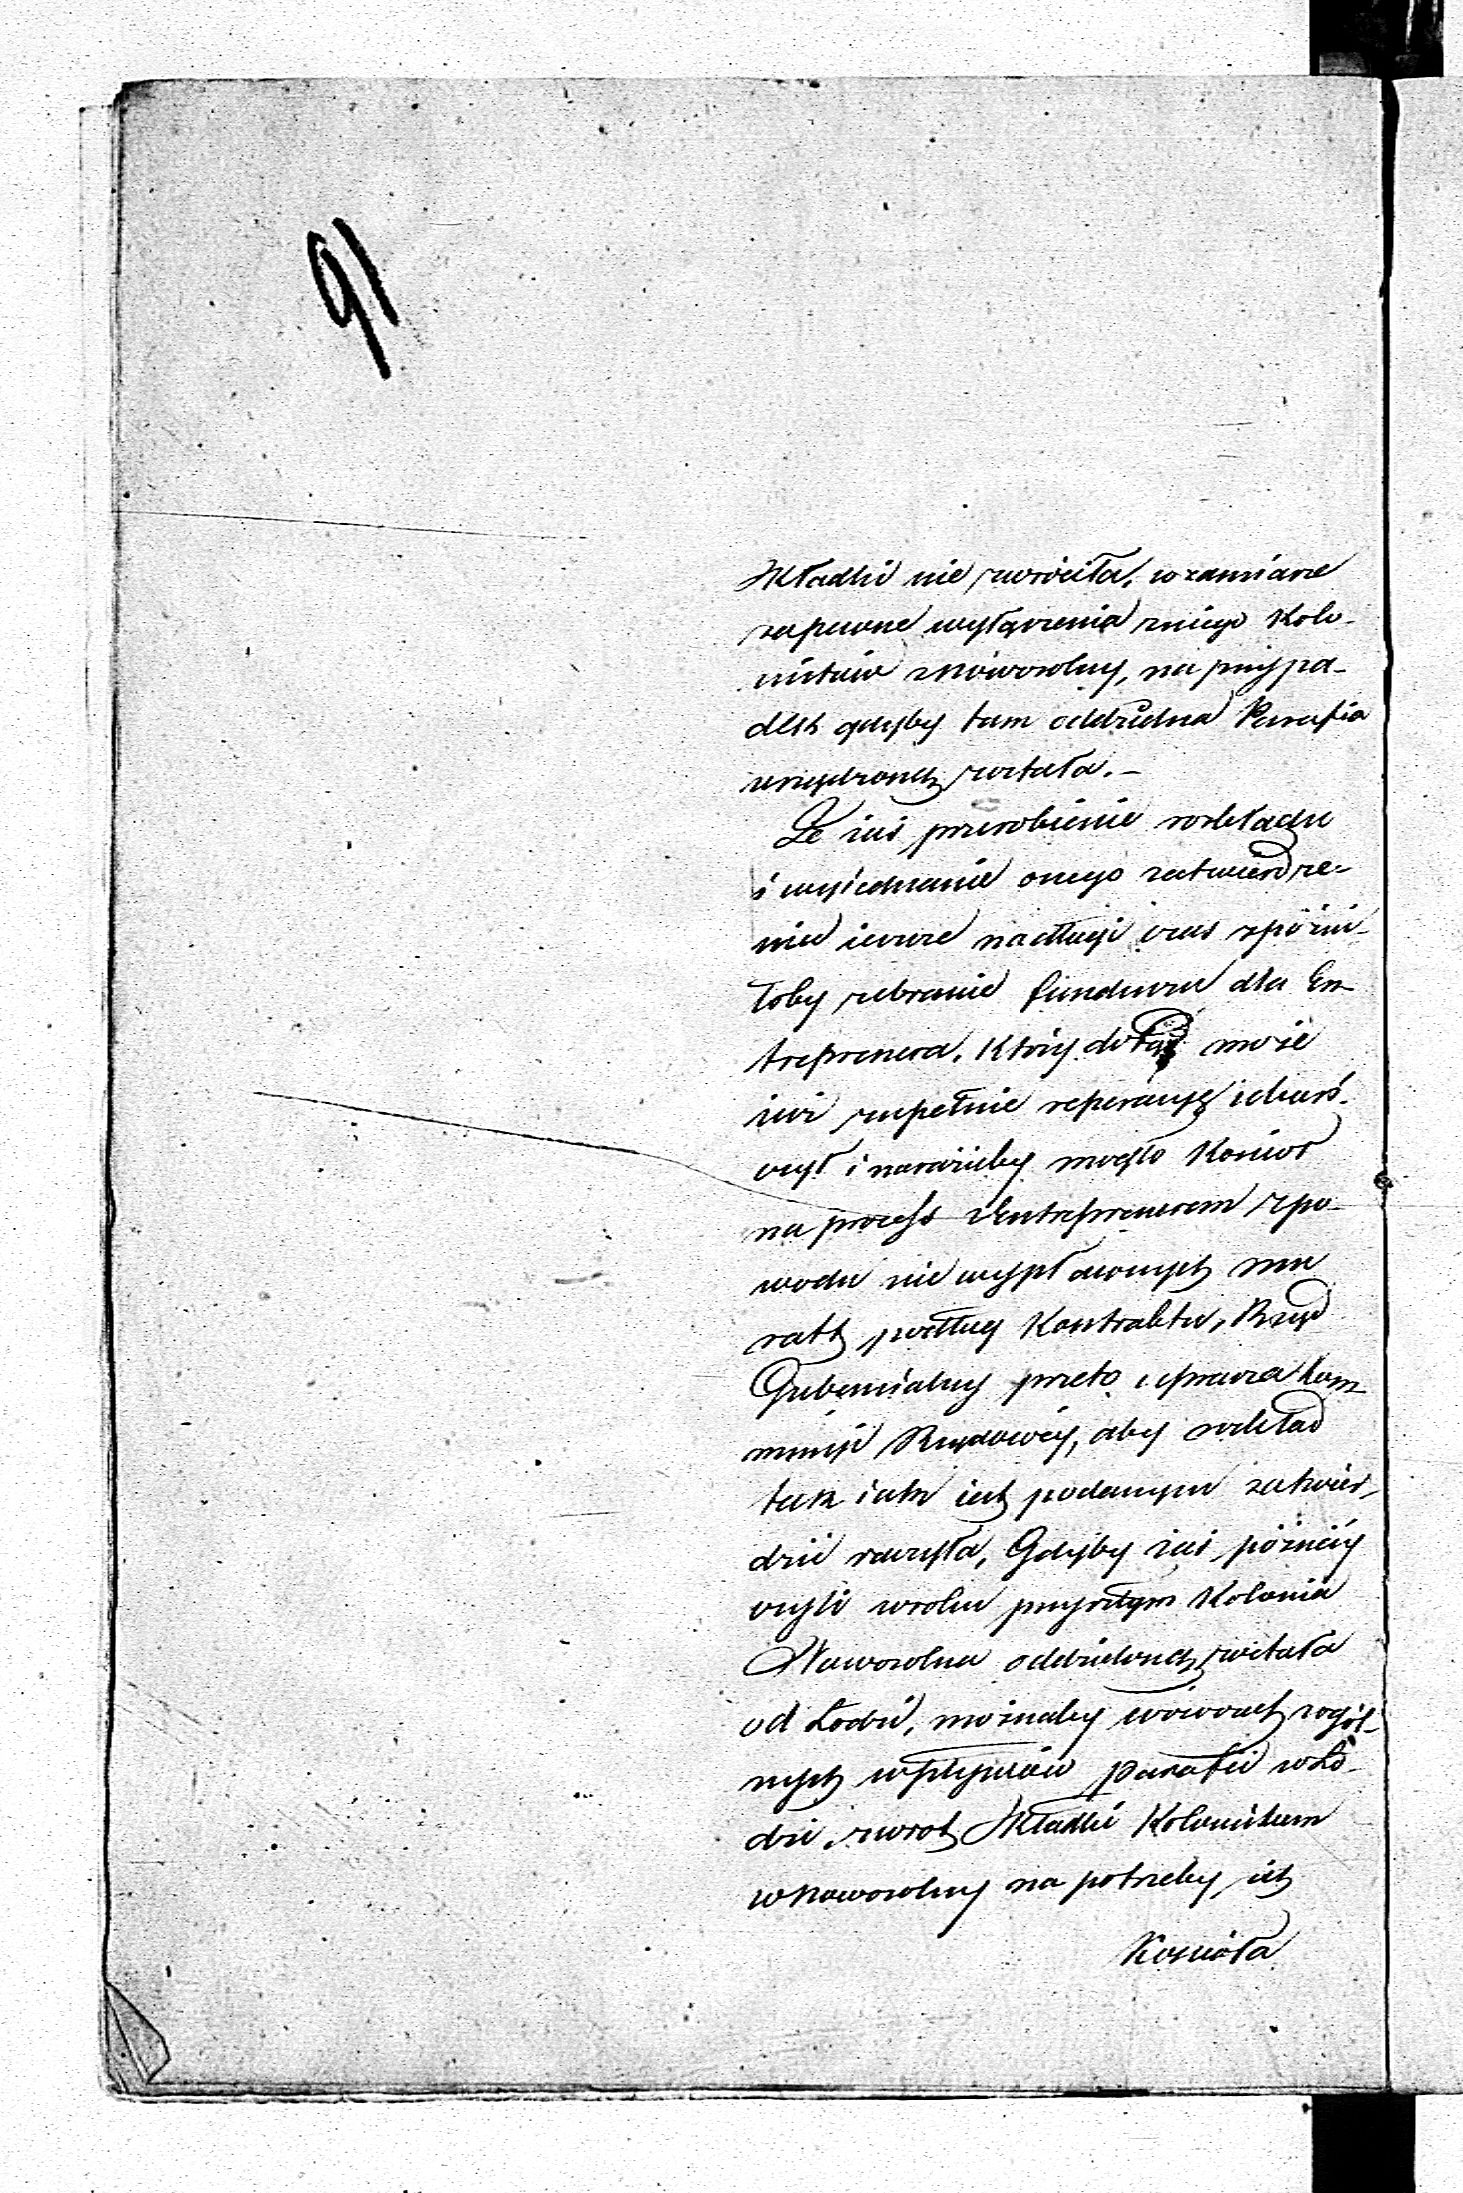 91
Składki nie zwróciła, w zamiarze
zapewne wyłączenia z niéy Kolo-
nistów z Nowosolny, na przypa-
dek gdyby tam oddzielna Parafia
urządzoną została. –
Że zaś przerobienie rozkładu
i wyiednanie onego zatwierdze-
nia ieszcze na dłuży czas spóźni-
łoby zebranie funduszu dla En-
treprenera, który dotąd może
iuż zupełnie reperacyę ukoń-
czył i naraziłoby mogło Kościół
na process z Entreprenerem z po-
wodu nie wypłaconych mu
rat podług Kontraktu, Rząd
Gubernialny przeto uprasza Kom-
missyi Rządowéy, aby rozkład
tak iak iest podanym zatwier-
dzić raczyła, Gdyby zaś późniéy
czyli w roku przyszłym Kolonia
Nowosolna oddzieloną została
od Łodzi, możnaby wówczas z ogól-
nych wpływów parafii w Ło-
dzi, zwrot Składki Kolonistom
w Nowosolny na potrzeby ich
Kościoła